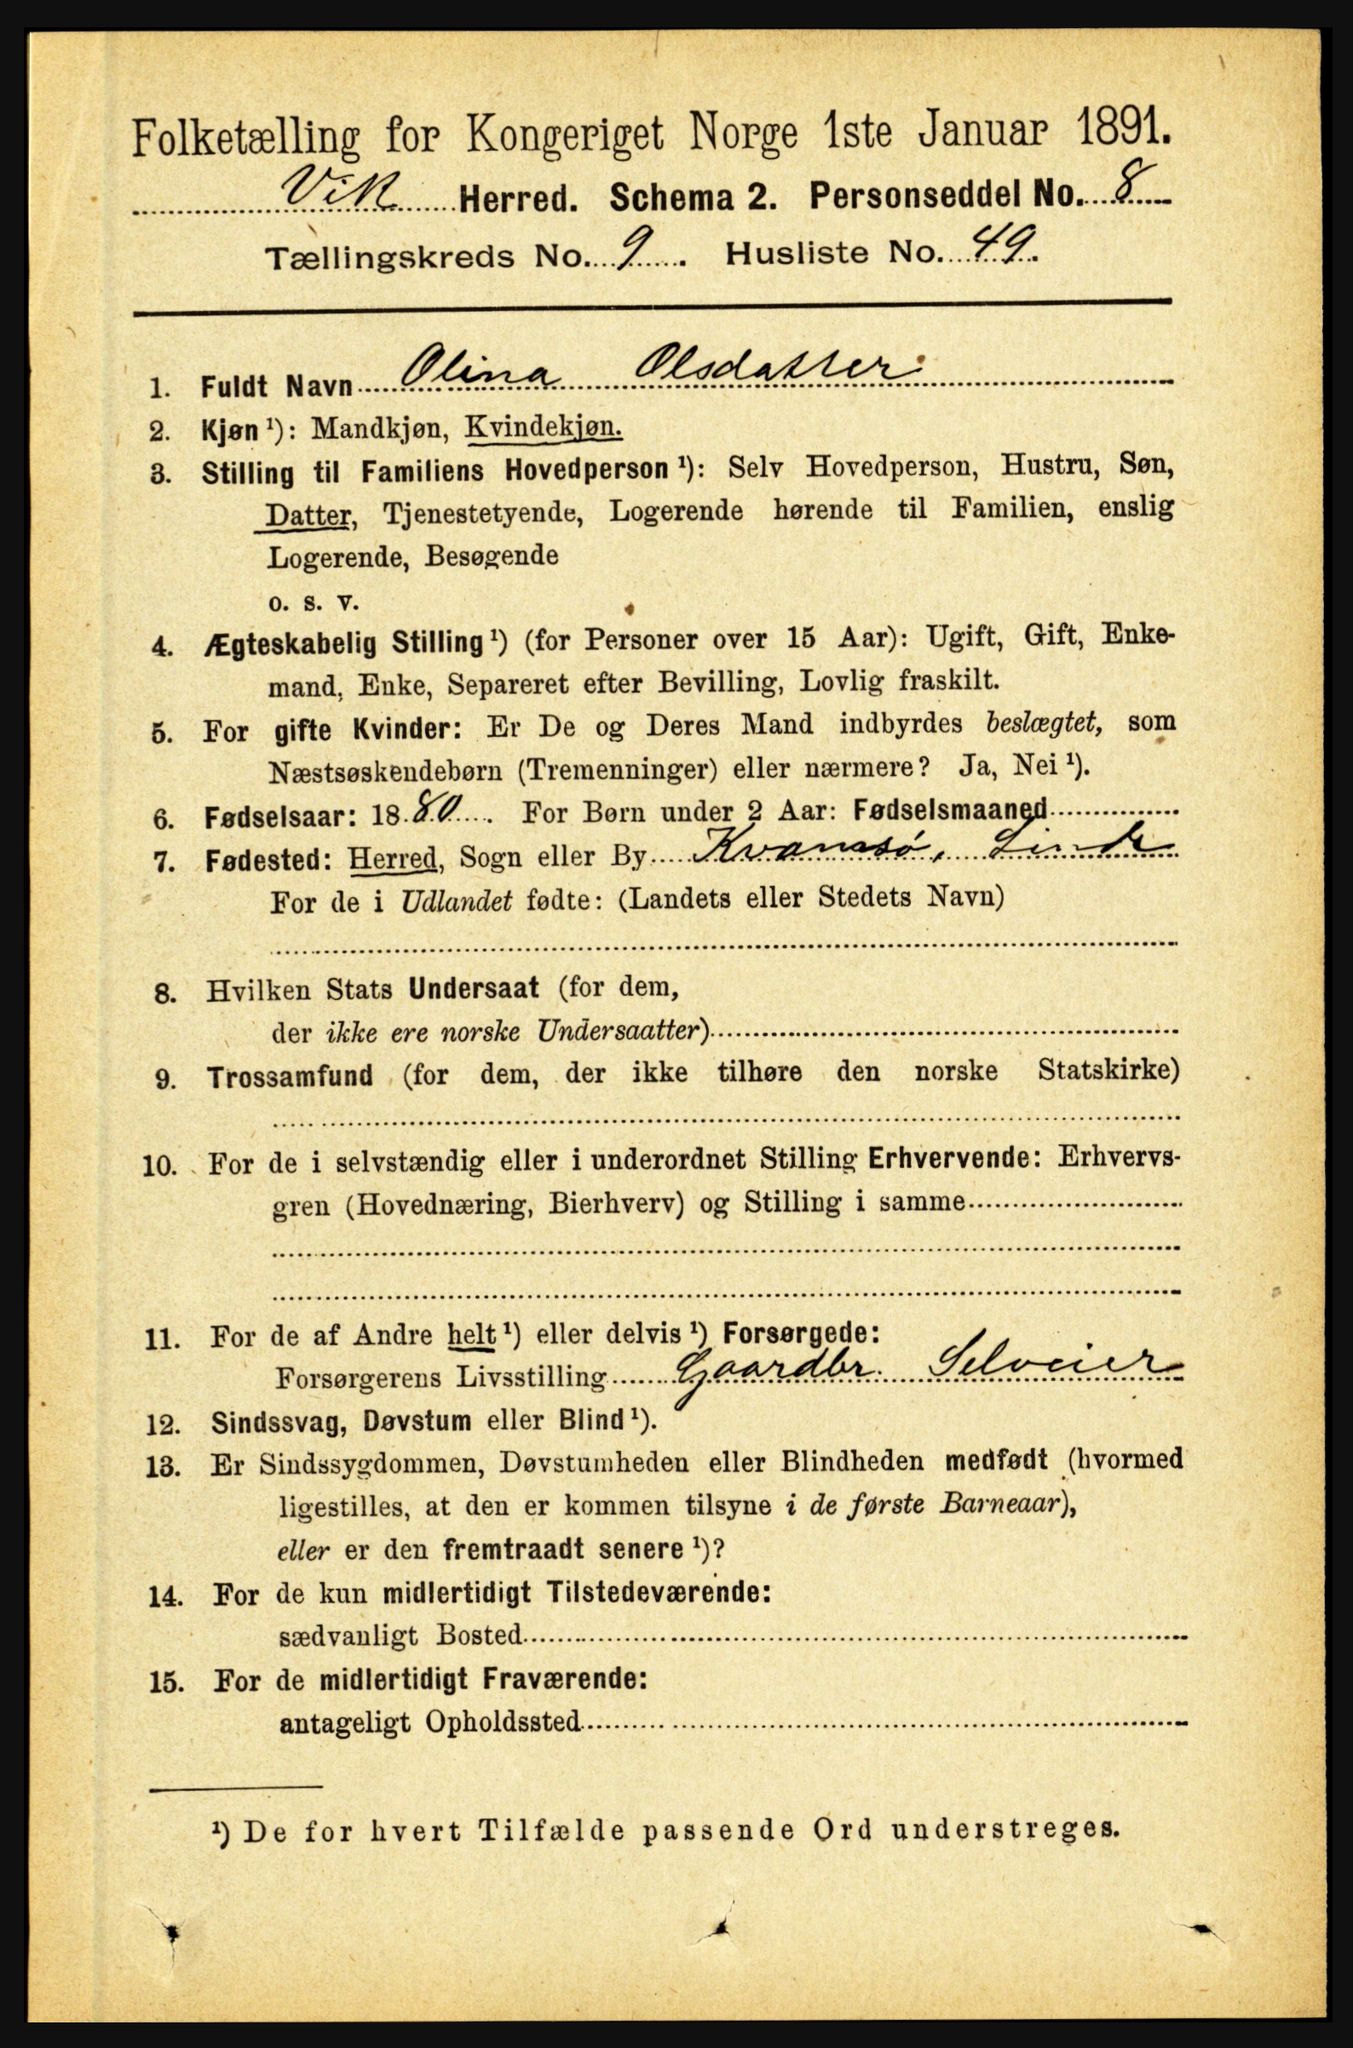 Folketælling for Kongeriget Norge 1ste Januar 1891.
Vik Herred. Schema 2. Personseddel No. 8
Tællingskreds No. 9. Husliste No. 49.
1. Fuldt Navn Olina Olsdatter
2. Kjøn ¹): Mandkjøn, Kvindekjøn.
3. Stilling til Familiens Hovedperson ¹): Selv Hovedperson, Hustru, Søn,
Datter, Tjenestetyende, Logerende hørende til Familien, enslig
Logerende, Besøgende
o. s. v.
4. Ægteskabelig Stilling ¹) (for Personer over 15 Aar): Ugift, Gift, Enke-
mand, Enke, Separeret efter Bevilling, Lovlig fraskilt.
5. For gifte Kvinder: Er De og Deres Mand indbyrdes beslægtet, som
Næstsøskendebørn (Tremenninger) eller nærmere? Ja, Nei ¹).
6. Fødselsaar: 1880. For Børn under 2 Aar: Fødselsmaaned
7. Fødested: Herred, Sogn eller By Kvamsø,
For de i Udlandet fødte: (Landets eller Stedets Navn)
8. Hvilken Stats Undersaat (for dem,
der ikke ere norske Undersaatter)
9. Trossamfund (for dem, der ikke tilhøre den norske Statskirke)
10. For de i selvstændig eller i underordnet Stilling Erhvervende: Erhvervs-
gren (Hovednæring, Bierhverv) og Stilling i samme
11. For de af Andre helt ¹) eller delvis ¹) Forsørgede:
Forsørgerens Livsstilling Gaardbr. Selveier
12. Sindssvag, Døvstum eller Blind ¹).
13. Er Sindssygdommen, Døvstumheden eller Blindheden medfødt (hvormed
ligestilles, at den er kommen tilsyne i de første Barneaar),
eller er den fremtraadt senere ¹)?
14. For de kun midlertidigt Tilstedeværende:
sædvanligt Bosted
15. For de midlertidigt Fraværende:
antageligt Opholdssted
¹) De for hvert Tilfælde passende Ord understreges.